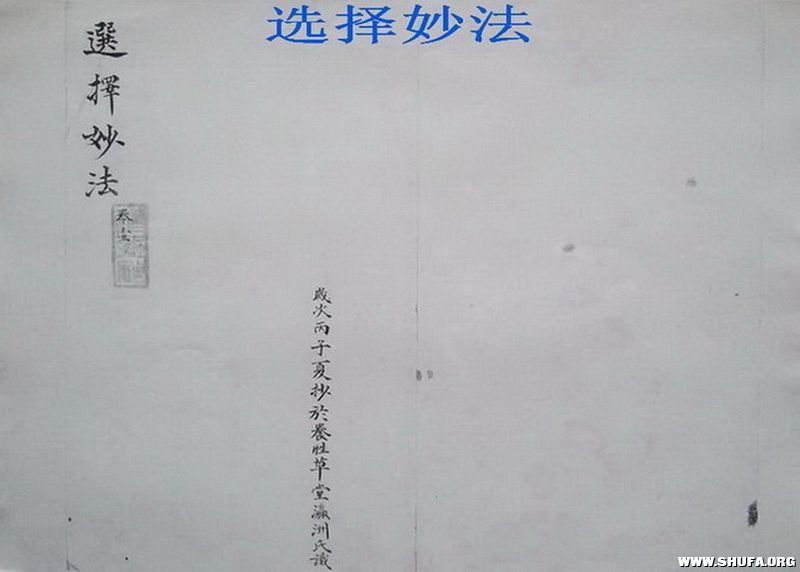 选择妙法
選擇妙法
卷
歲次丙子夏抄於養性草堂瀛洲氏識
WWW.SHUFA.ORG